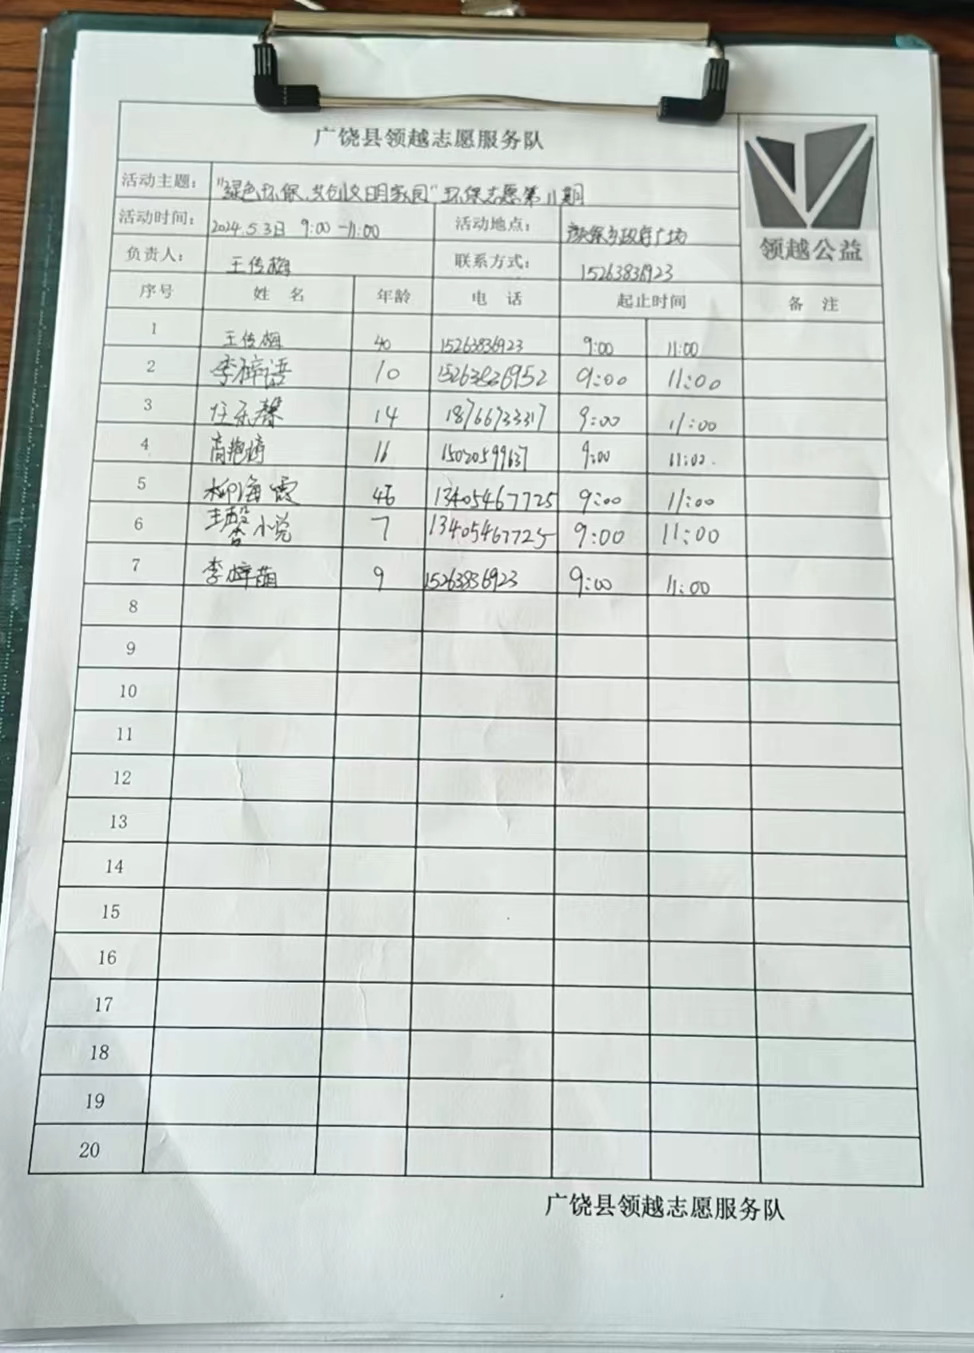 广饶县领越志愿服务队
领越公益
活动主题： "绿色环保,共创文明家园"环保志愿第11期
活动时间： 2024.5.3日 9:00-11:00 活动地点： 政府广场
负责人： 王传梅 联系方式： 15263836923
序号 姓名 年龄 电话 起止时间 备注
1 王传梅 40 15263836923 9:00 11:00
2 李梓语 10 15263836952 9:00 11:00
3 任乐馨 14 18766733317 9:00 11:00
4 高艳婷 16 15020599637 9:00 11:00.
5 柳海霞 46 13405467725 9:00 11:00
6 小说 7 13405467725 9:00 11:00
7 李梓萌 9 15263836923 9:00 11:00
8
9
10
11
12
13
14
15
16
17
18
19
20
广饶县领越志愿服务队